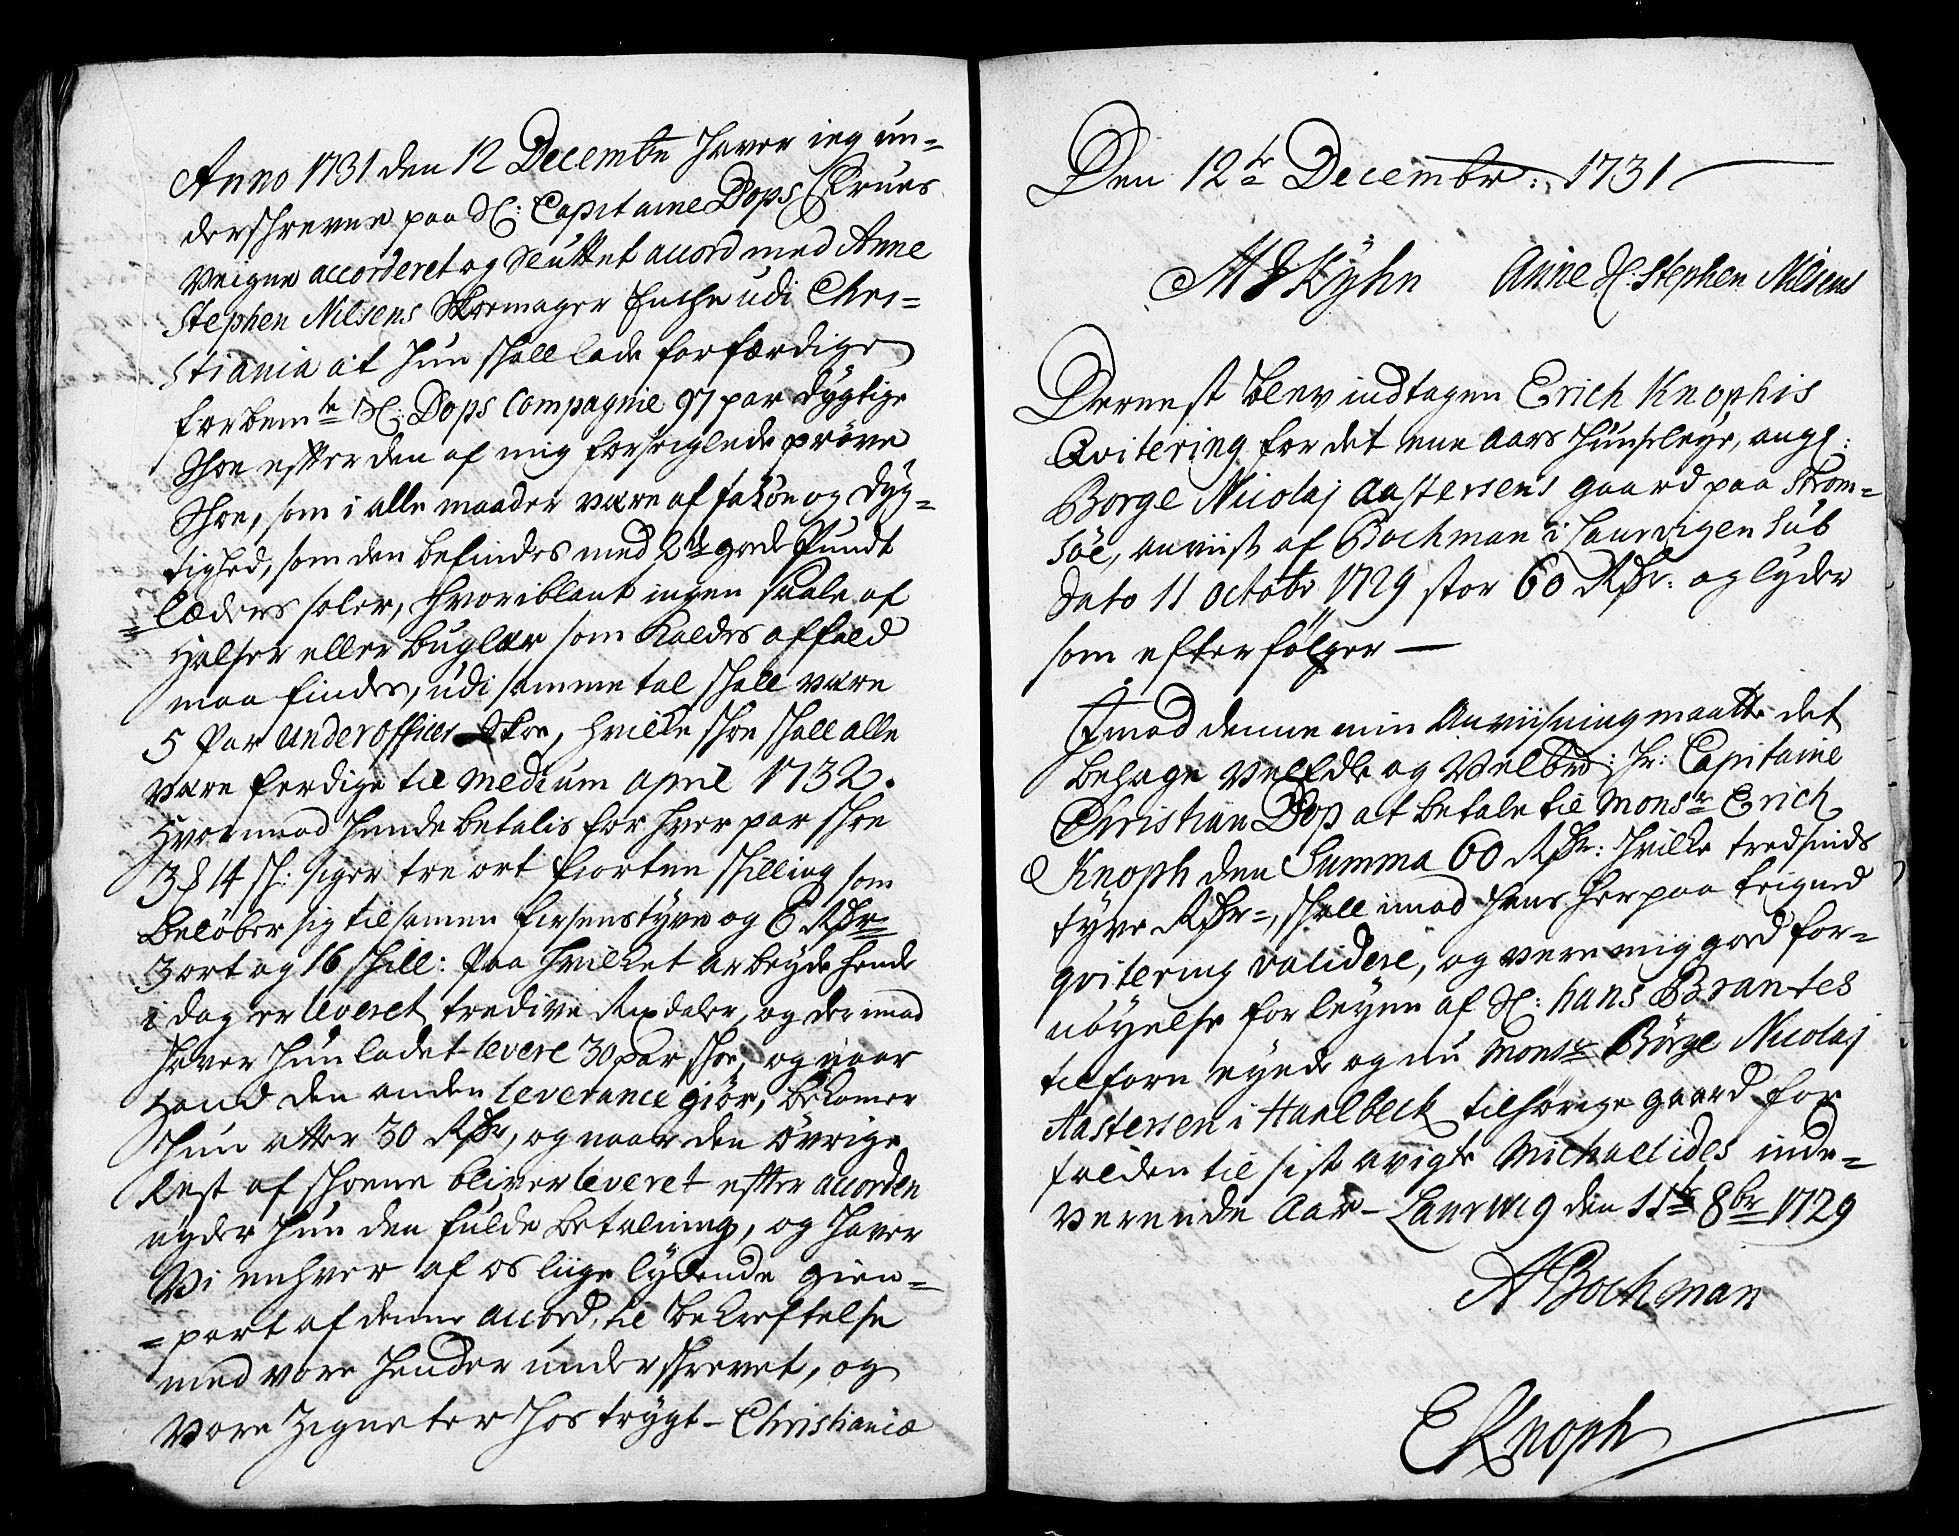 Anno 1731 den 12 Decembr haver ieg un=
derskrevne paa Sl: Capitaine Dops Frues
Veigne accorderet og sluttet accord med Anne
Stephen Nilsens Skoemager Enche udi Chri=
stiania at hun skall lade forfærdige
for bemte Sl: Dops Compagnie 97 par dygtige
Skoe efter den af mig forseiglede pröve
Skoe, som i alle maader være af facon og dyg=
tighed, som den befindes med 2de gode Pundt
=læders soler, hvoriblant ingen saale af
Halser eller buglær som Kaldes affald
maa findes, udi samme tal skall være
5 Par underofficer Skoe, hvilke skoe skall alle
være ferdige til medium april 1732.
Hvorimod hende betalis for hver par skoe
3 ß 14 sk: siger tre ort fiorten skilling som
beløber sig tilsamen firsenstyve og 6 Rdr
3 ort og 16 skill: Paa hvilket arbeyde hende
i dag er leveret tredive Rixdaler, og derimod
haver hun ladet levere 30 par skoe, og naar
Hand den anden leverance giör, bekomer
hun atter 30 Rdr, og naar den övrige
Rest af skoene bliver leveret efter accorden
nyder hun den fulde betalning, og haver
Vi enhver af os liige lydende gien=
=part af denne accord, til bekreftelse
med vore hender underskrevet, og
vore Zigneter hos trygt - Christiania
Den 12te Decembr: 1731
M S Kyhn Anne Sl. Stephen Nilsens
Dernest blev indtagen Erich Knophis
Qvitering for det ene Aars huusleye, angl:
Borge Nicolaj Aastersens gaard paa Strom=
söe, anviist af Bochman i Laurvigen sub
dato 11 octobr 1729 stor 60 Rdr: og lyder
som efterfölger —
Imod denne min Anviisning maatte det
behage VelEdle og Velbrd: Hr: Capitaine
Christian Dop at betale til Monsr Erich
Knoph den Summa 60 Rdr: hvilke tredsinds
tyve Rdr=, skall imod hans herpaa teigned
qvitering validere, og være mig goed for=
nöyelse for leyen af Sl: hans Brantes
tilforn eyede og nu Monsr Börge Nicolaj
Aastersen i Haelbeck tilhörige gaard for
falden til sist avigte Michaelides inde=
værende Aar - Laurwig den 11te 8br 1729
A Bochman
E Knoph